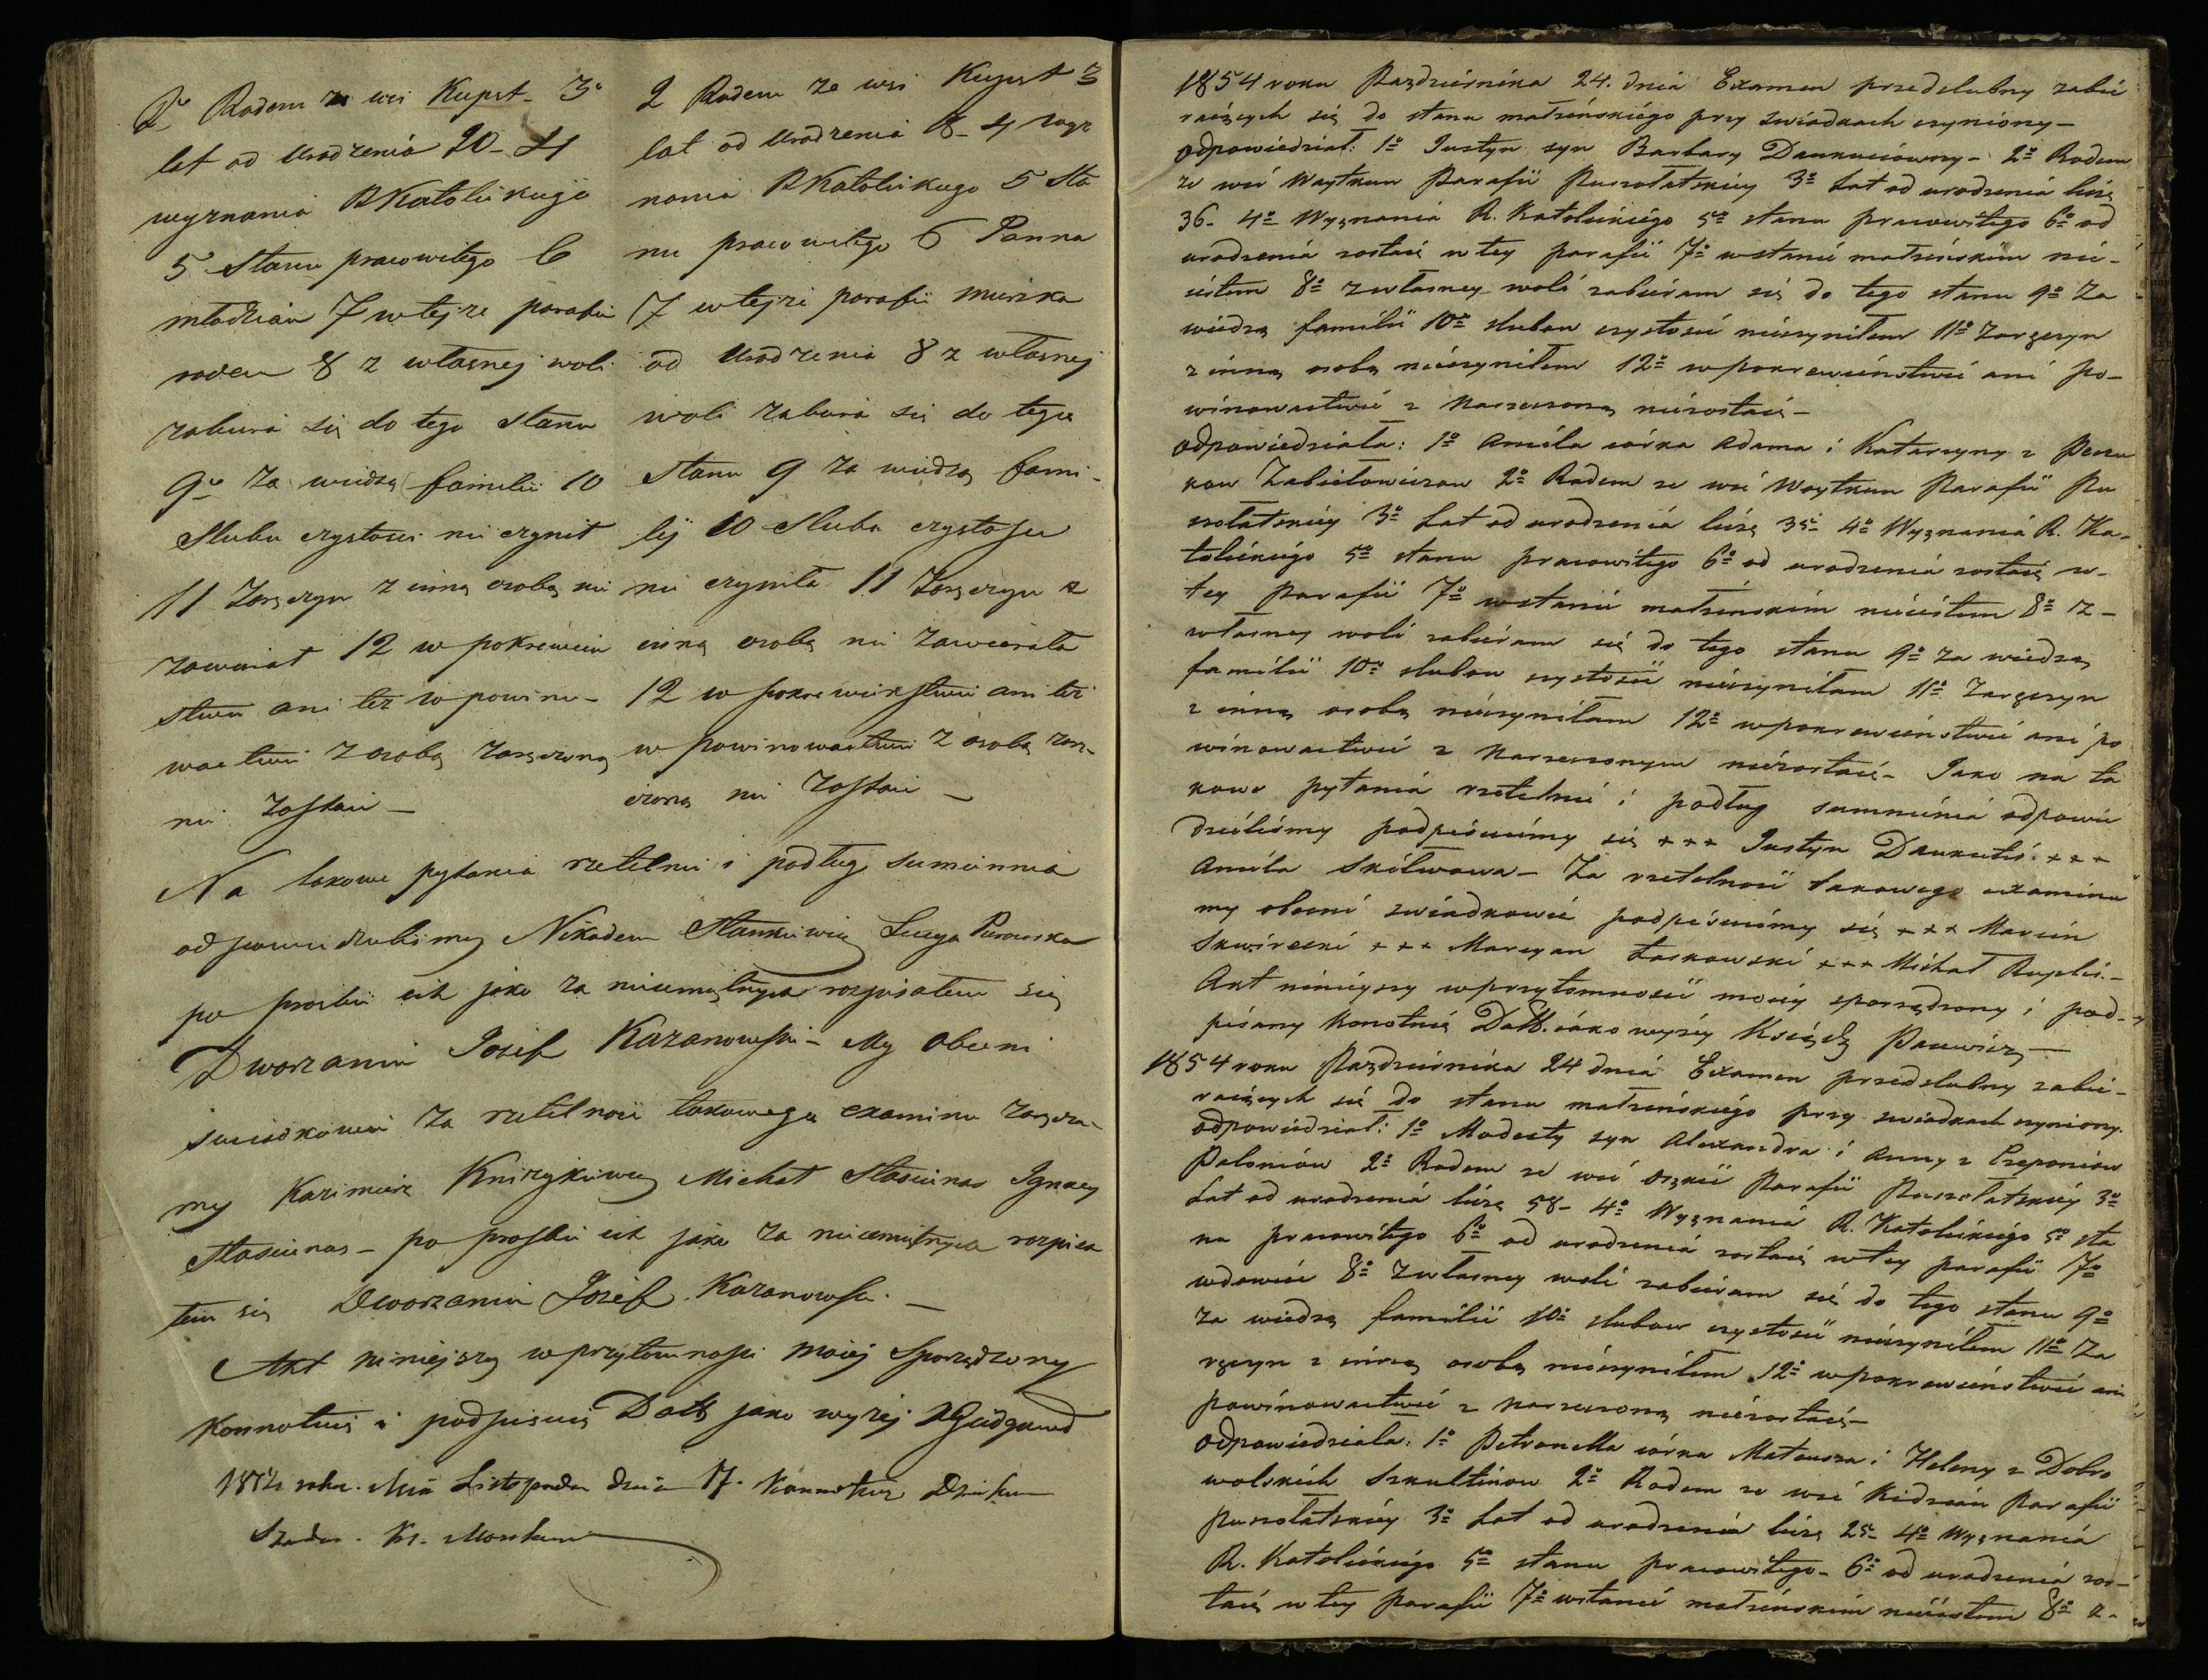 2o Rodem ze wsi Kupst- 3o
lat od Urodzenia 20- 4
wyznania RKatolickiego
5 Stanu pracowitego 6
młodzian 7 w tejze parafii
rodem 8 z własnej woli
zabiera się do tego stanu
9o Za wiedzą familii 10
Slubu czystosci nie czynił
11 Zaręczyn z inną osobą nie
zawierał 12 w pokrewien
stwie ani też w powino-
wactwie z osobą zaręczoną
nie zostaie —
2 Rodem ze wsi Kupst 3
lat od Urodzenia 18- 4 wyz
nania RKatolickiego 5 Sta
nu pracowitego 6 Panna
7 w tejze parafii mieszka
od Urodzenia 8 z własnej
woli zabiera się do tego
Stanu 9 za wiedzą fami-
lij 10 Slubu czystosci
nie czyniła 11 Zaręczyn z
inną osobą nie zawierała
12 w pokrewienstwie ani też
w powinowactwie z osobą zarę-
czoną nie zostaie —
Na takowe pytania rzetelnie i podług sumiennia
odpowiedzielismy Nikodem Stankiewicz Lucya
po prosbie ich jako za nieumiętnych rozpisałem się
Dworzanin Jozef Kazanowski - My obecni
swiadkowie za rzetelnosc takowego examinu zaręcza-
my Kazimierz Michał Stasiunas Ignacy
Stasiunas - po prosbie ich jako za nieumiętnych rozpisa
łem się Dworzanin Jozef Kazanowski. —
Akt niniejszy w przytomnosci mojej Sporządzony
Konnotuię i podpisuię Datt jako wyżej
roku. Mca Listopada dnia 17. Konnotuie Dziekan
Ks.
1854 roku Pazdziernika 24. dnia Examen przedslubny zabie
raiących się do stanu małżeńskiego przy swiadkach czyniony-
odpowiedział: 1o Justyn syn Barbary Daukuciowny- 2o Rodem
ze wsi Waytkun Parafii Puszołatskiey 3o Lat od urodzenia liczę
36- 4o Wyznania R. Katolickiego 5o stanu pracowitego 6o od
urodzenia zostaię w tey parafii 7o w stanie małżeńskim nie-
iestem 8o z własney woli zabieram się do tego stanu 9o Za
wiedzą familii 10o slubow czystosci nieczyniłem 11o Zaręczyn
z inną osobą nieczyniłem 12o w pokrewieństwie ani po-
winowactwie z Narzeczoną niezostaię-
odpowiedziała: 1o Aniela córka Adama i Katarzyny z
Zabiełowiczow 2o Rodem ze wsi Waytkun Parafii Pu
szołatskiey 3o Lat od urodzenia liczę 35- 4o Wyznania R. Ka-
tolickiego 5o stanu pracowitego 6o od urodzenia zostaię w-
tey Parafii 7o w stanie małżenskim nieiestem 8o z-
własney woli zabieram się do tego stanu 9o za wiedzą
familii 10o slubow czystosci nieczyniłam 11o Zaręczyn
z inną osobą nieczyniłam 12o w pokrewieństwie ani po
winowactwie z Narzeczonym niezostaię- Jako na ta
kowe pytania rzetelnie i podług sumnienia odpowie
dzieliśmy podpisuiemy się +++ Justyn Daukutis +++
Aniela - Za rzetelnosć takowego examinu
my obecni swiadkowie podpisuiemy się +++ Marcin
+++ Maryan Łaskowski +++ Michał
Akt ninieyszy w przytomnosci moiey sporządzony i pod-
pisany Konotuię Datt. iako wyżey Ksiądz
1854 roku Pazdziernika 24 dnia Examen przedslubny zabie-
raiących się do stanu małżeńskiego przy swiadkach czyniony.
odpowiedział: 1o Modesty syn Alexandra i Anny z
Paloniow 2o Rodem ze wsi Parafii Puszołatskiey 3o
Lat od urodzenia liczę 58- 4o Wyznania R. Katolickiego 5o sta
nu pracowitego 6o od urodzenia zostaię w tey parafii 7o
wdowiec 8o z własney woli zabieram się do tego stanu 9o
za wiedzą familii 10o slubow czystosci nieczyniłem 11o Za
ręczyn z inną osobą nieczyniłem 12o w pokrewieństwie ani
powinowactwie z Narzeczoną niezostaię-
odpowiedziała: 1o Petronella córka Mateusza i Heleny z Dobro
wolskich Szkultinow 2o Rodem ze wsi Parafii
Puszołatskiey 3o Lat od urodzenia liczę 25- 4o Wyznania
R. Katolickiego 5o stanu pracowitego- 6o od urodzenia zos-
taię w tey Parafii 7o w stanie małżeńskim nieiestem 8o z-